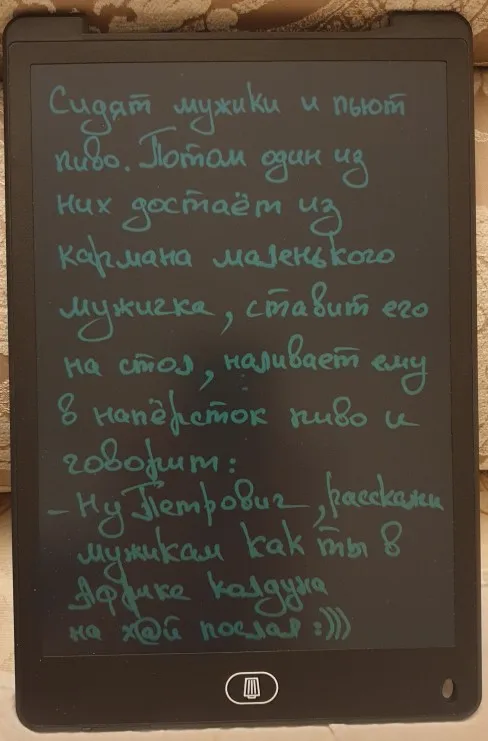 Сидят мужики и пьют
пиво. Потом один из
них достаёт из
кармана маленького
мужичка, ставит его
на стол, наливает ему
в напёрсток пиво и
говорит:
- Ну Петрович, расскажи
мужикам как ты в
Африке колдуна
на х@й послал :)))